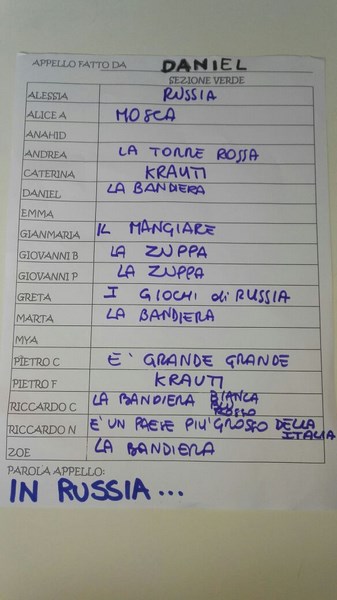 APPELLO FATTO DA DANIEL
SEZIONE VERDE
ALESSIA RUSSIA
ALICE A MOSCA
ANAHID
ANDREA LA TORRE ROSSA
CATERINA KRAUTI
DANIEL LA BANDIERA
EMMA
GIANMARIA IL MANGIARE
GIOVANNI B LA ZUPPA
GIOVANNI P LA ZUPPA
GRETA I GIOCHI di RUSSIA
MARTA LA BANDIERA
MYA
PIETRO C E' GRANDE GRANDE
PIETRO F KRAUTI
RICCARDO C LA BANDIERA BIANCA
BLU
ROSSO
RICCARDO N E' UN PAESE PIU' GROSSO DELLA
ITALIA
ZOE LA BANDIERA
PAROLA APPELLO:
IN RUSSIA...